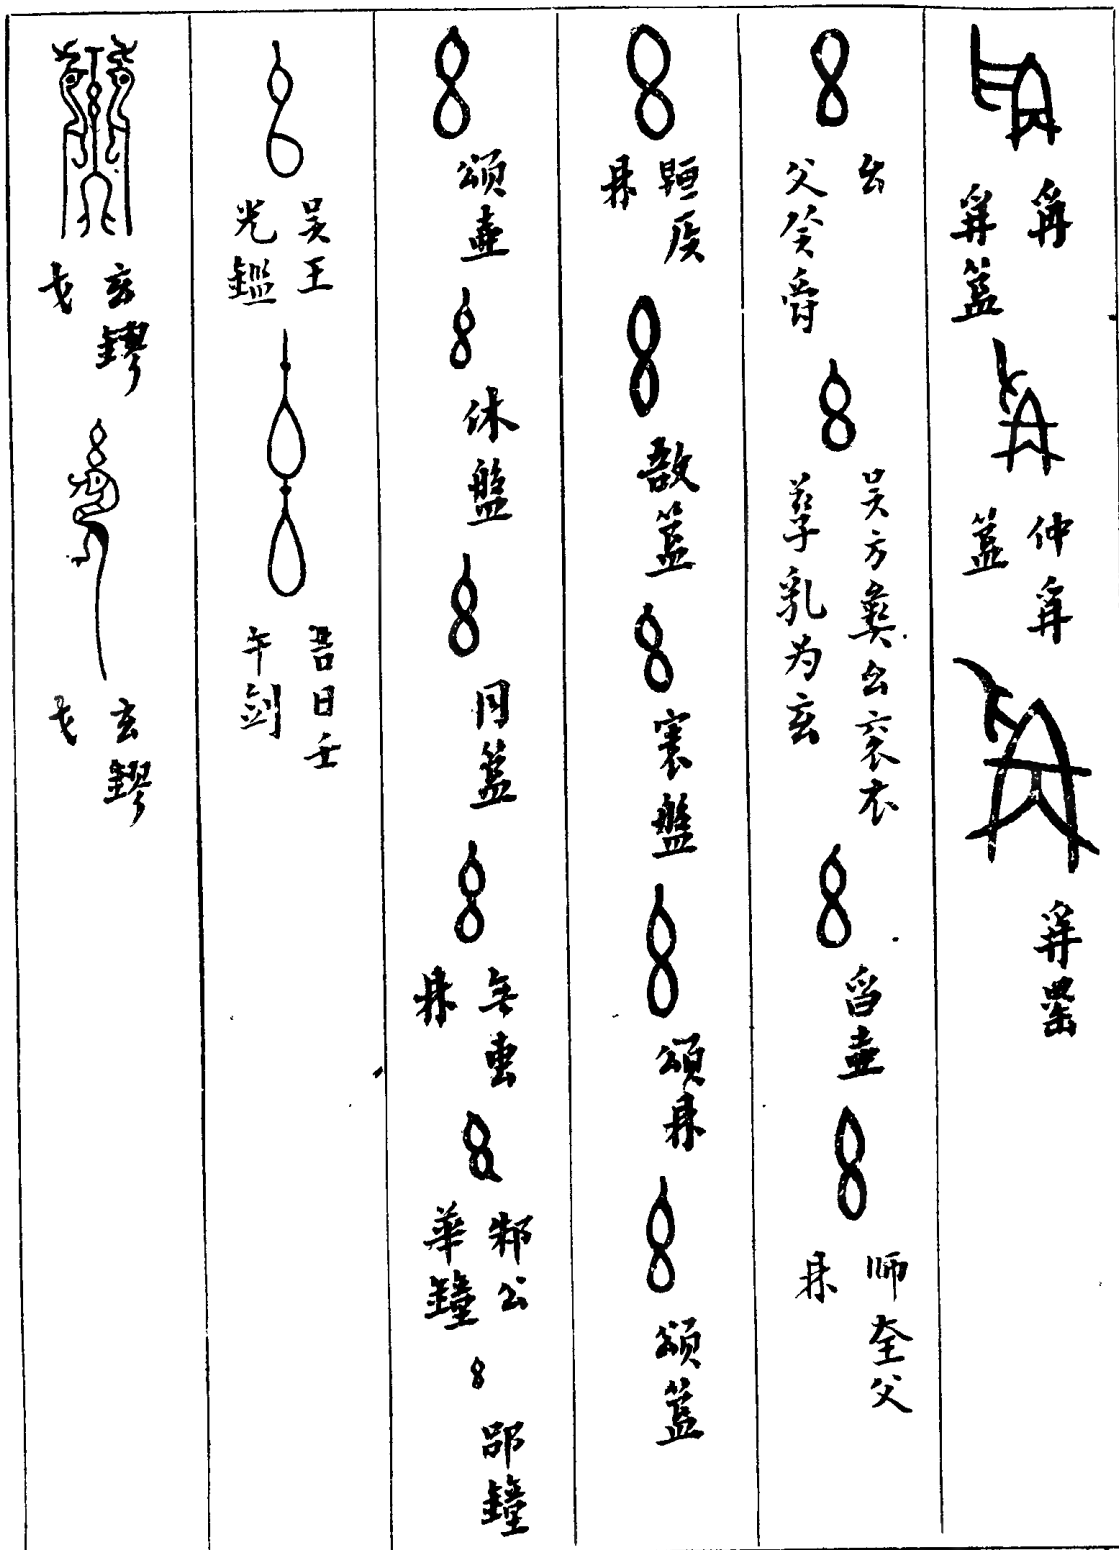 爯 爯簋 仲爯簋 爯罍
幺 父癸爵 吴方彝幺衮衣 孳乳为玄 舀壶 师奎父鼎
侯鼎 敔簋 寰盤 頌鼎 頌簋
頌壺 休盤 同簋 無叀鼎 邾公華鐘 郘鐘
吴王光鑑 吉日壬午剑
玄鏐戈 玄鏐戈